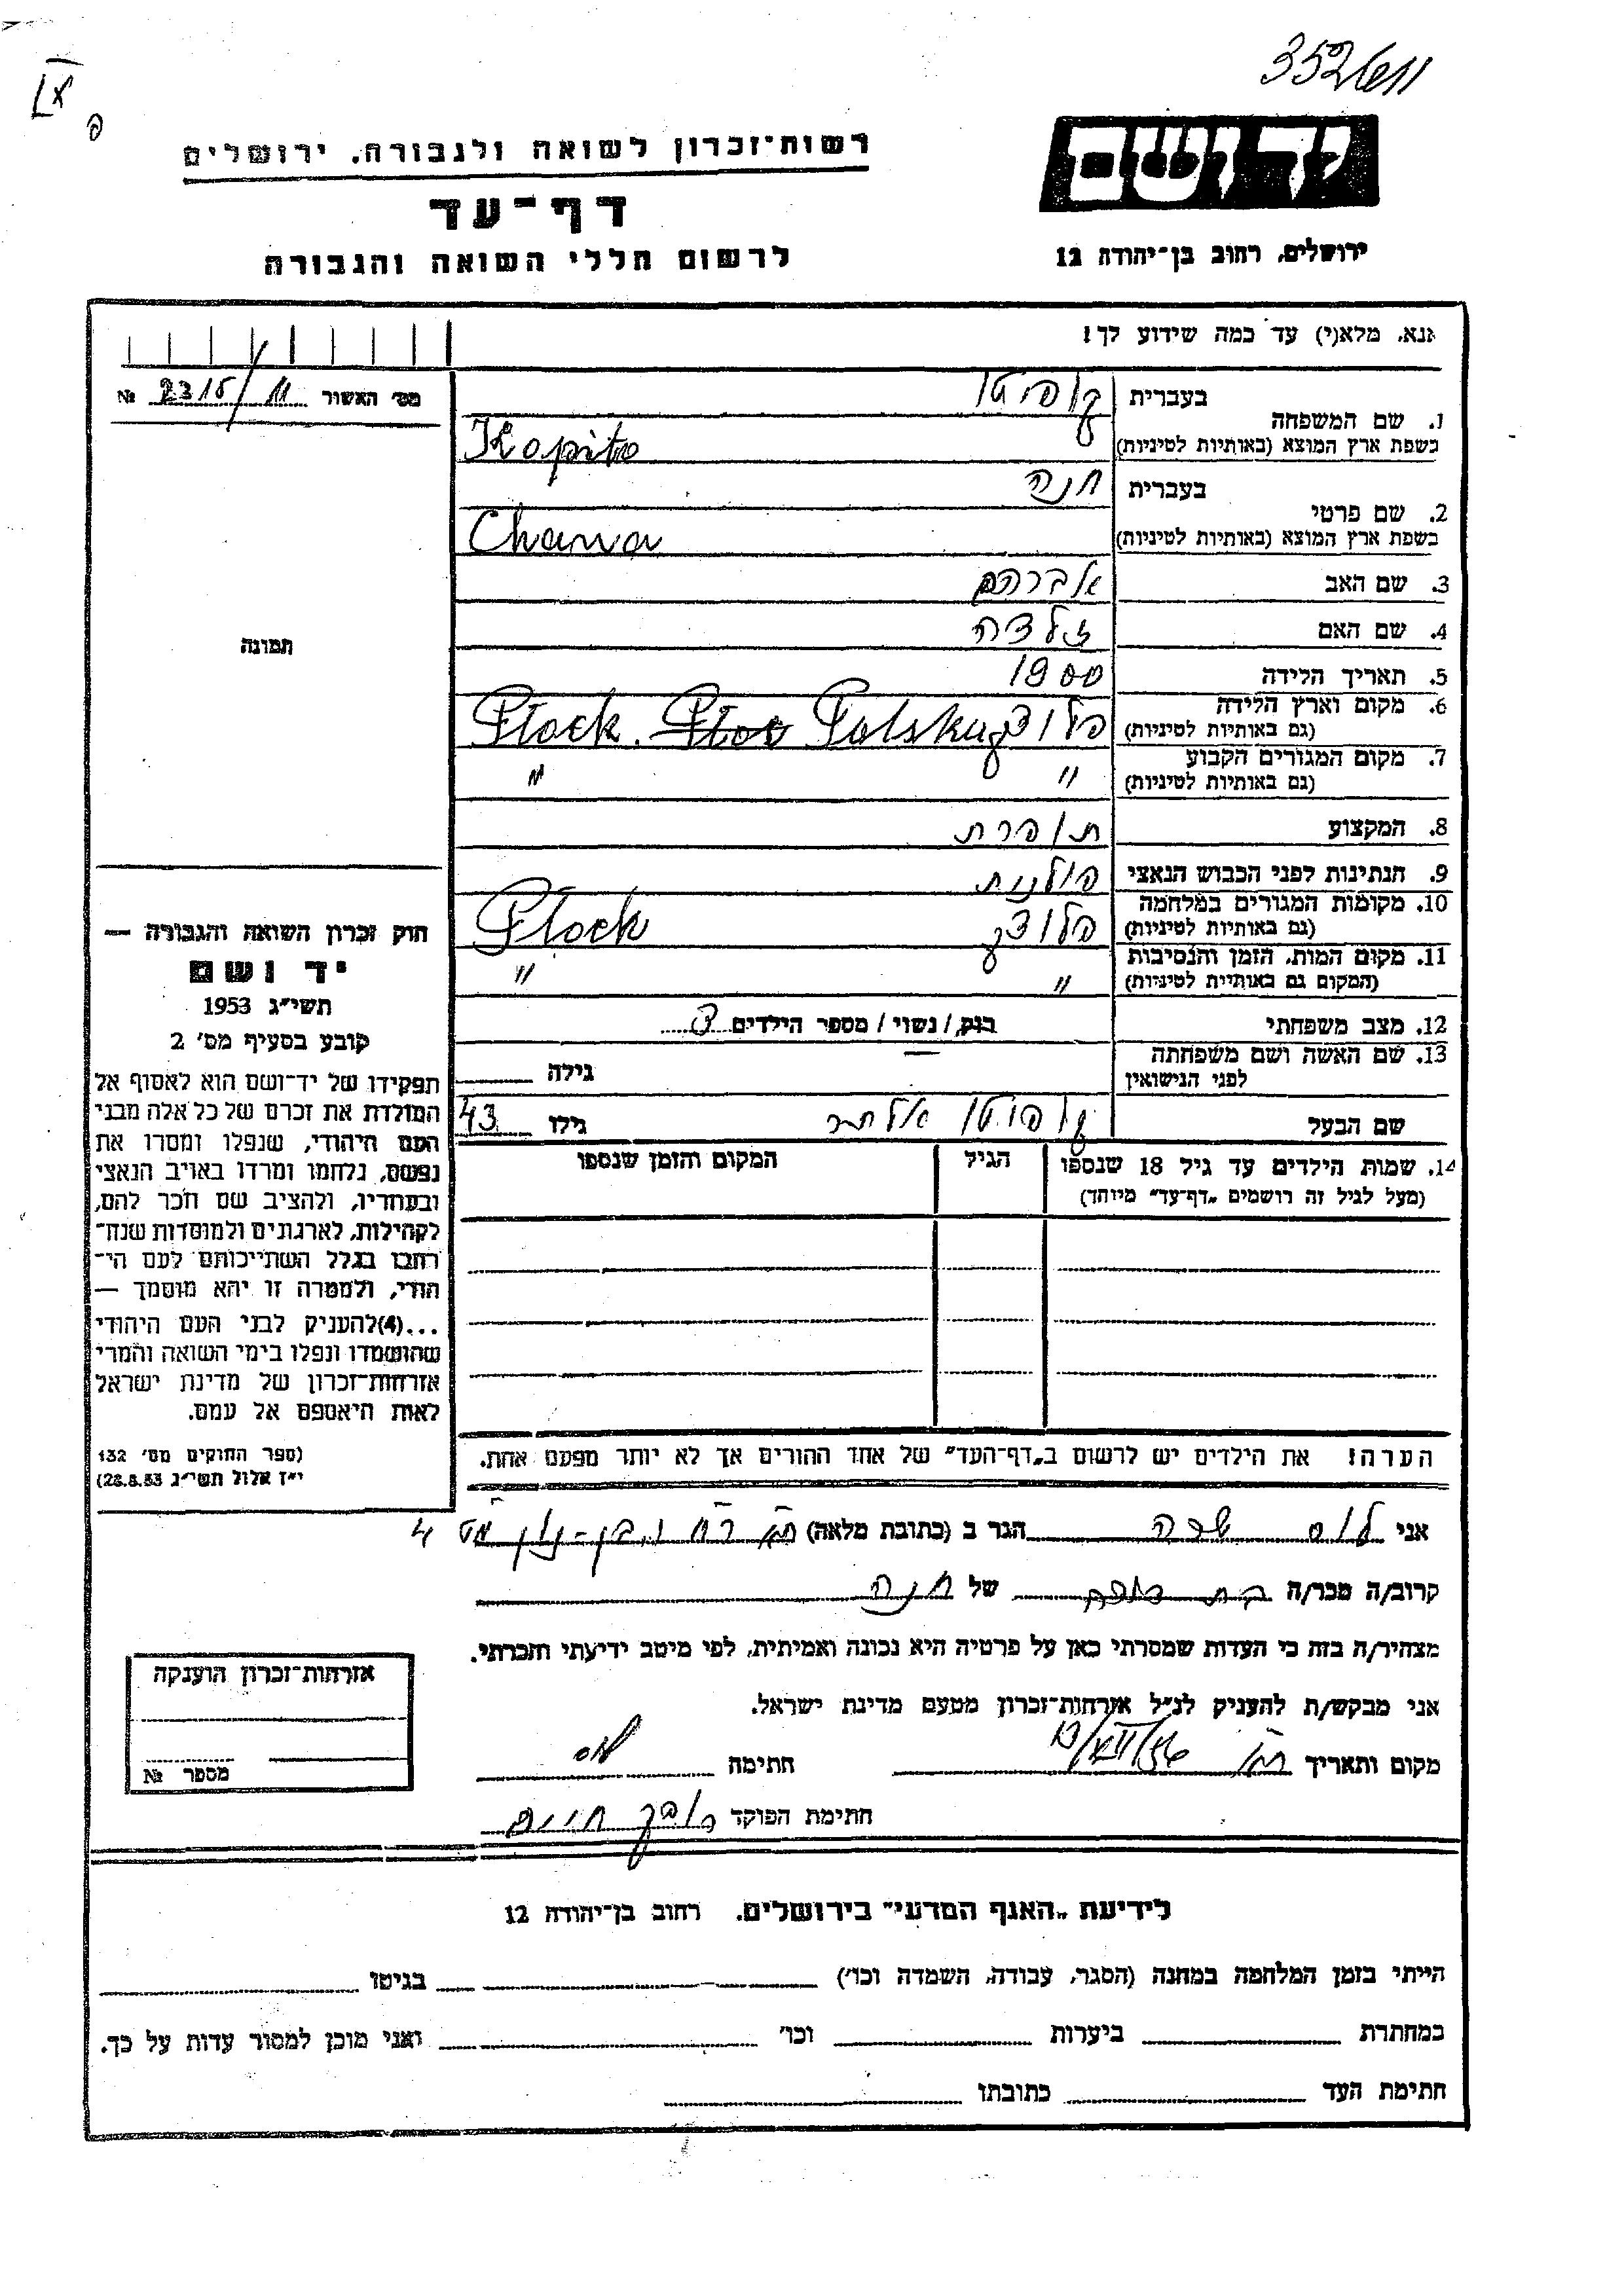 352611
רשות־זכרון לשואה ולגבורה. ירושלים
יד ושם
דף־עד
לרשום חללי השואה והגבורה
ירושלים. רחוב בן־יהודה 12
אנא. מלא(י) עד כמה שידוע לך!
מס׳ האשור 2315/11 №
1. שם המשפחה
בעברית קופיטו
בשפת ארץ המוצא (באותיות לטיניות) Kopito
2. שם פרטי
בעברית חנה
בשפת ארץ המוצא (באותיות לטיניות) Chana
3. שם האב אברהם
4. שם האם זלדה
5. תאריך הלידה 1900
6. מקום וארץ הלידה
(גם באותיות לטיניות) פלוצק Płock. Polska
7. מקום המגורים הקבוע
(גם באותיות לטיניות) " "
8. המקצוע תופרת
9. הנתינות לפני הכבוש הנאצי פולנית
10. מקומות המגורים במלחמה
(גם באותיות לטיניות) פלוצק Płock
11. מקום המות. הזמן והנסיבות
(המקום גם באותיית לטיניות) " "
12. מצב משפחתי רווק / נשוי / מספר הילדים 3
13. שם האשה ושם משפחתה
לפני הנישואין — גילה
שם הבעל קופיטו אלתר גילו 43
14. שמות הילדים עד גיל 18 שנספו
(מעל לגיל זה רושמים „דף־עד" מיוחד)
הגיל
המקום והזמן שנספו
תמונה
חוק זכרון השואה והגבורה —
יד ושם
תשי״ג 1953
קובע בסעיף מס׳ 2
תפקידו של יד־ושם הוא לאסוף אל
המולדת את זכרם של כל אלה מבני
העם היהודי, שנפלו ומסרו את
נפשם, נלחמו ומרדו באויב הנאצי
ובעוזריו, ולהציב שם וזכר להם,
לקהילות, לארגונים ולמוסדות שנח־
רבו בגלל השתייכותם לעם הי־
הודי, ולמטרה זו יהא מוסמך —
...(4)להעניק לבני העם היהודי
שהושמדו ונפלו בימי השואה והמרי
אזרחות־זכרון של מדינת ישראל
לאות היאספם אל עמם.
(ספר החוקים מס׳ 132
י״ז אלול תשי״ג 28.8.53)
הערה! את הילדים יש לרשום ב„דף־העד" של אחד ההורים אך לא יותר מפעם אחת.
אני שרה הגר ב (כתובת מלאה) בן-נון 4
קרוב/ה מכר/ה בת דודה של חנה
מצהיר/ה בזה כי העדות שמסרתי כאן על פרטיה היא נכונה ואמיתית, לפי מיטב ידיעתי והכרתי.
אני מבקש/ת להעניק לנ״ל אזרחות־זכרון מטעם מדינת ישראל.
מקום ותאריך חתימה
חתימת הפוקד חיים
אזרחות־זכרון הוענקה
מספר №
לידיעת „האגף המדעי" בירושלים. רחוב בן־יהודה 12
הייתי בזמן המלחמה במחנה (הסגר, עבודה, השמדה וכו׳) בגיטו
במחתרת ביערות וכו׳ ואני מוכן למסור עדות על כך.
חתימת העד כתובתו